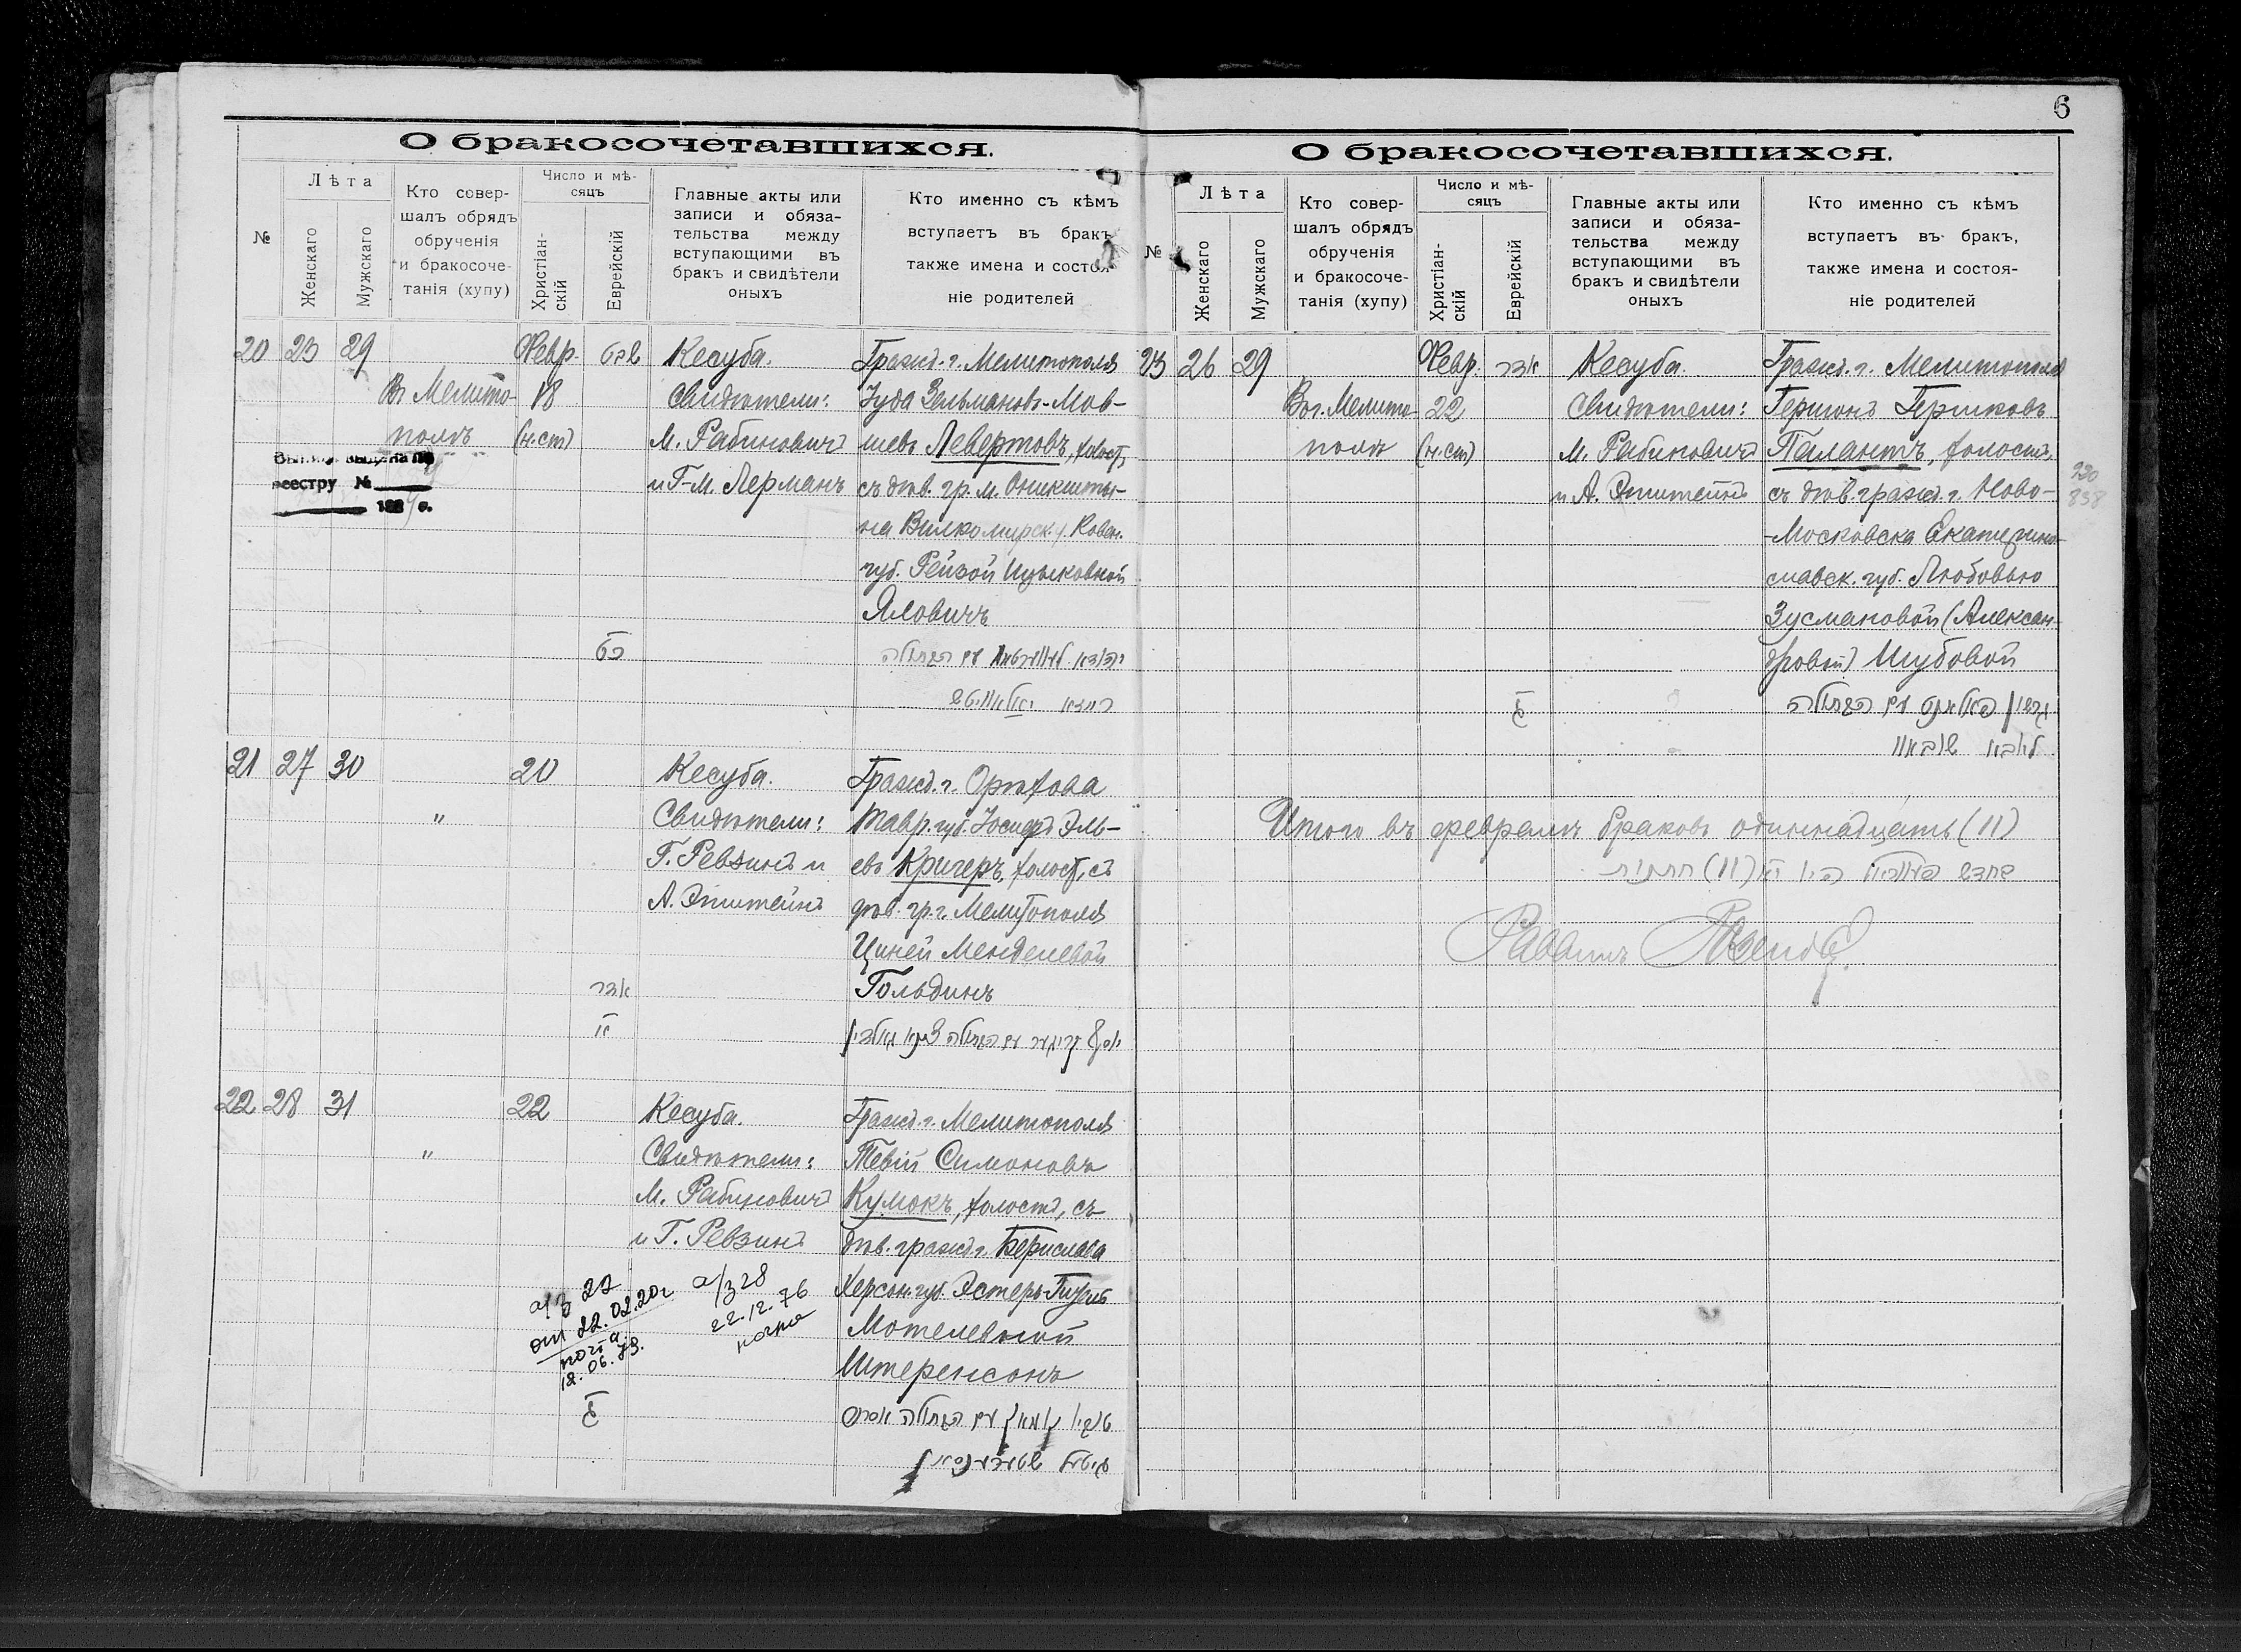 6
О бракосочетавшихся.
№
Лѣта
Женскаго
Мужскаго
Кто совер-
шалъ обрядъ
обрученія
и бракосоче-
танія (хупу)
Число и мѣ-
сяцъ
Христіан-
скій
Еврейскій
Главные акты или
записи и обяза-
тельства между
вступающими въ
бракъ и свидѣтели
оныхъ
Кто именно съ кѣмъ
вступаетъ въ бракъ
также имена и состоя-
ніе родителей
20 23 29
Въ Мелито-
полѣ
Февр.
18
(н.ст)
שבט
כט
Кесуба.
Свидѣтели:
М. Рабиновичъ
и Г-М. Лерманъ
Гражд. г. Мелитополя
Іуда Зельмановъ-Мов-
шевъ Левертовъ, холост,
съ дѣв. гр. м. Оникшты-
на Вилкомирск. у. Ковен.
губ. Рейзой Ицыковной
Яловичъ
עם הבתולה
реестру №
21 27 30
"
20
אדר
א
Кесуба.
Свидѣтели:
Г. Ревзинъ и
А. Эпштейнъ
Гражд. г. Орѣхова
Тавр. губ. Іосифъ Эль-
евъ Кригеръ, холост, съ
дѣв. гр. г. Мелитополя
Циней Менделевой
Гольдинъ
יוסף קריגער עם הבתולה ציניא גאלדין
22 28 31
"
22
ג
Кесуба.
Свидѣтели:
М. Рабиновичъ
и Г. Ревзинъ
Гражд. г. Мелитополя
Тевій Симоновъ
Кумокъ, холостъ, съ
дѣв. гражд. г. Берислава
Херсон. губ. Эстеръ-Гитель
Мотелевной
Штеренсонъ
טוביי קומאק עם הבתולה אסתר
גיטעל
а/з 22
от 22.02.20г
18.06.73.
а/з 28
22.12.76
О бракосочетавшихся.
№
Лѣта
Женскаго
Мужскаго
Кто совер-
шалъ обрядъ
обрученія
и бракосоче-
танія (хупу)
Число и мѣ-
сяцъ
Христіан-
скій
Еврейскій
Главные акты или
записи и обяза-
тельства между
вступающими въ
бракъ и свидѣтели
оныхъ
Кто именно съ кѣмъ
вступаетъ въ бракъ,
также имена и состоя-
ніе родителей
23 26 29
Въ г. Мелито-
полѣ
Февр.
22
(н.ст)
אדר
ג
Кесуба.
Свидѣтели:
М. Рабиновичъ
и А. Эпштейнъ
Гражд. г. Мелитополя
Гершонъ Гершковъ
Палантъ, холостъ,
съ дѣв. гражд. г. Ново-
-Московска Екатерино-
славск. губ. Любовью
Зусмановой (Алексан-
дровой) Шубовой
גרשון פאלאנט עם הבתולה
ליובא שובאוו
Итого въ февралѣ браковъ одиннадцать (11)
Раввинъ